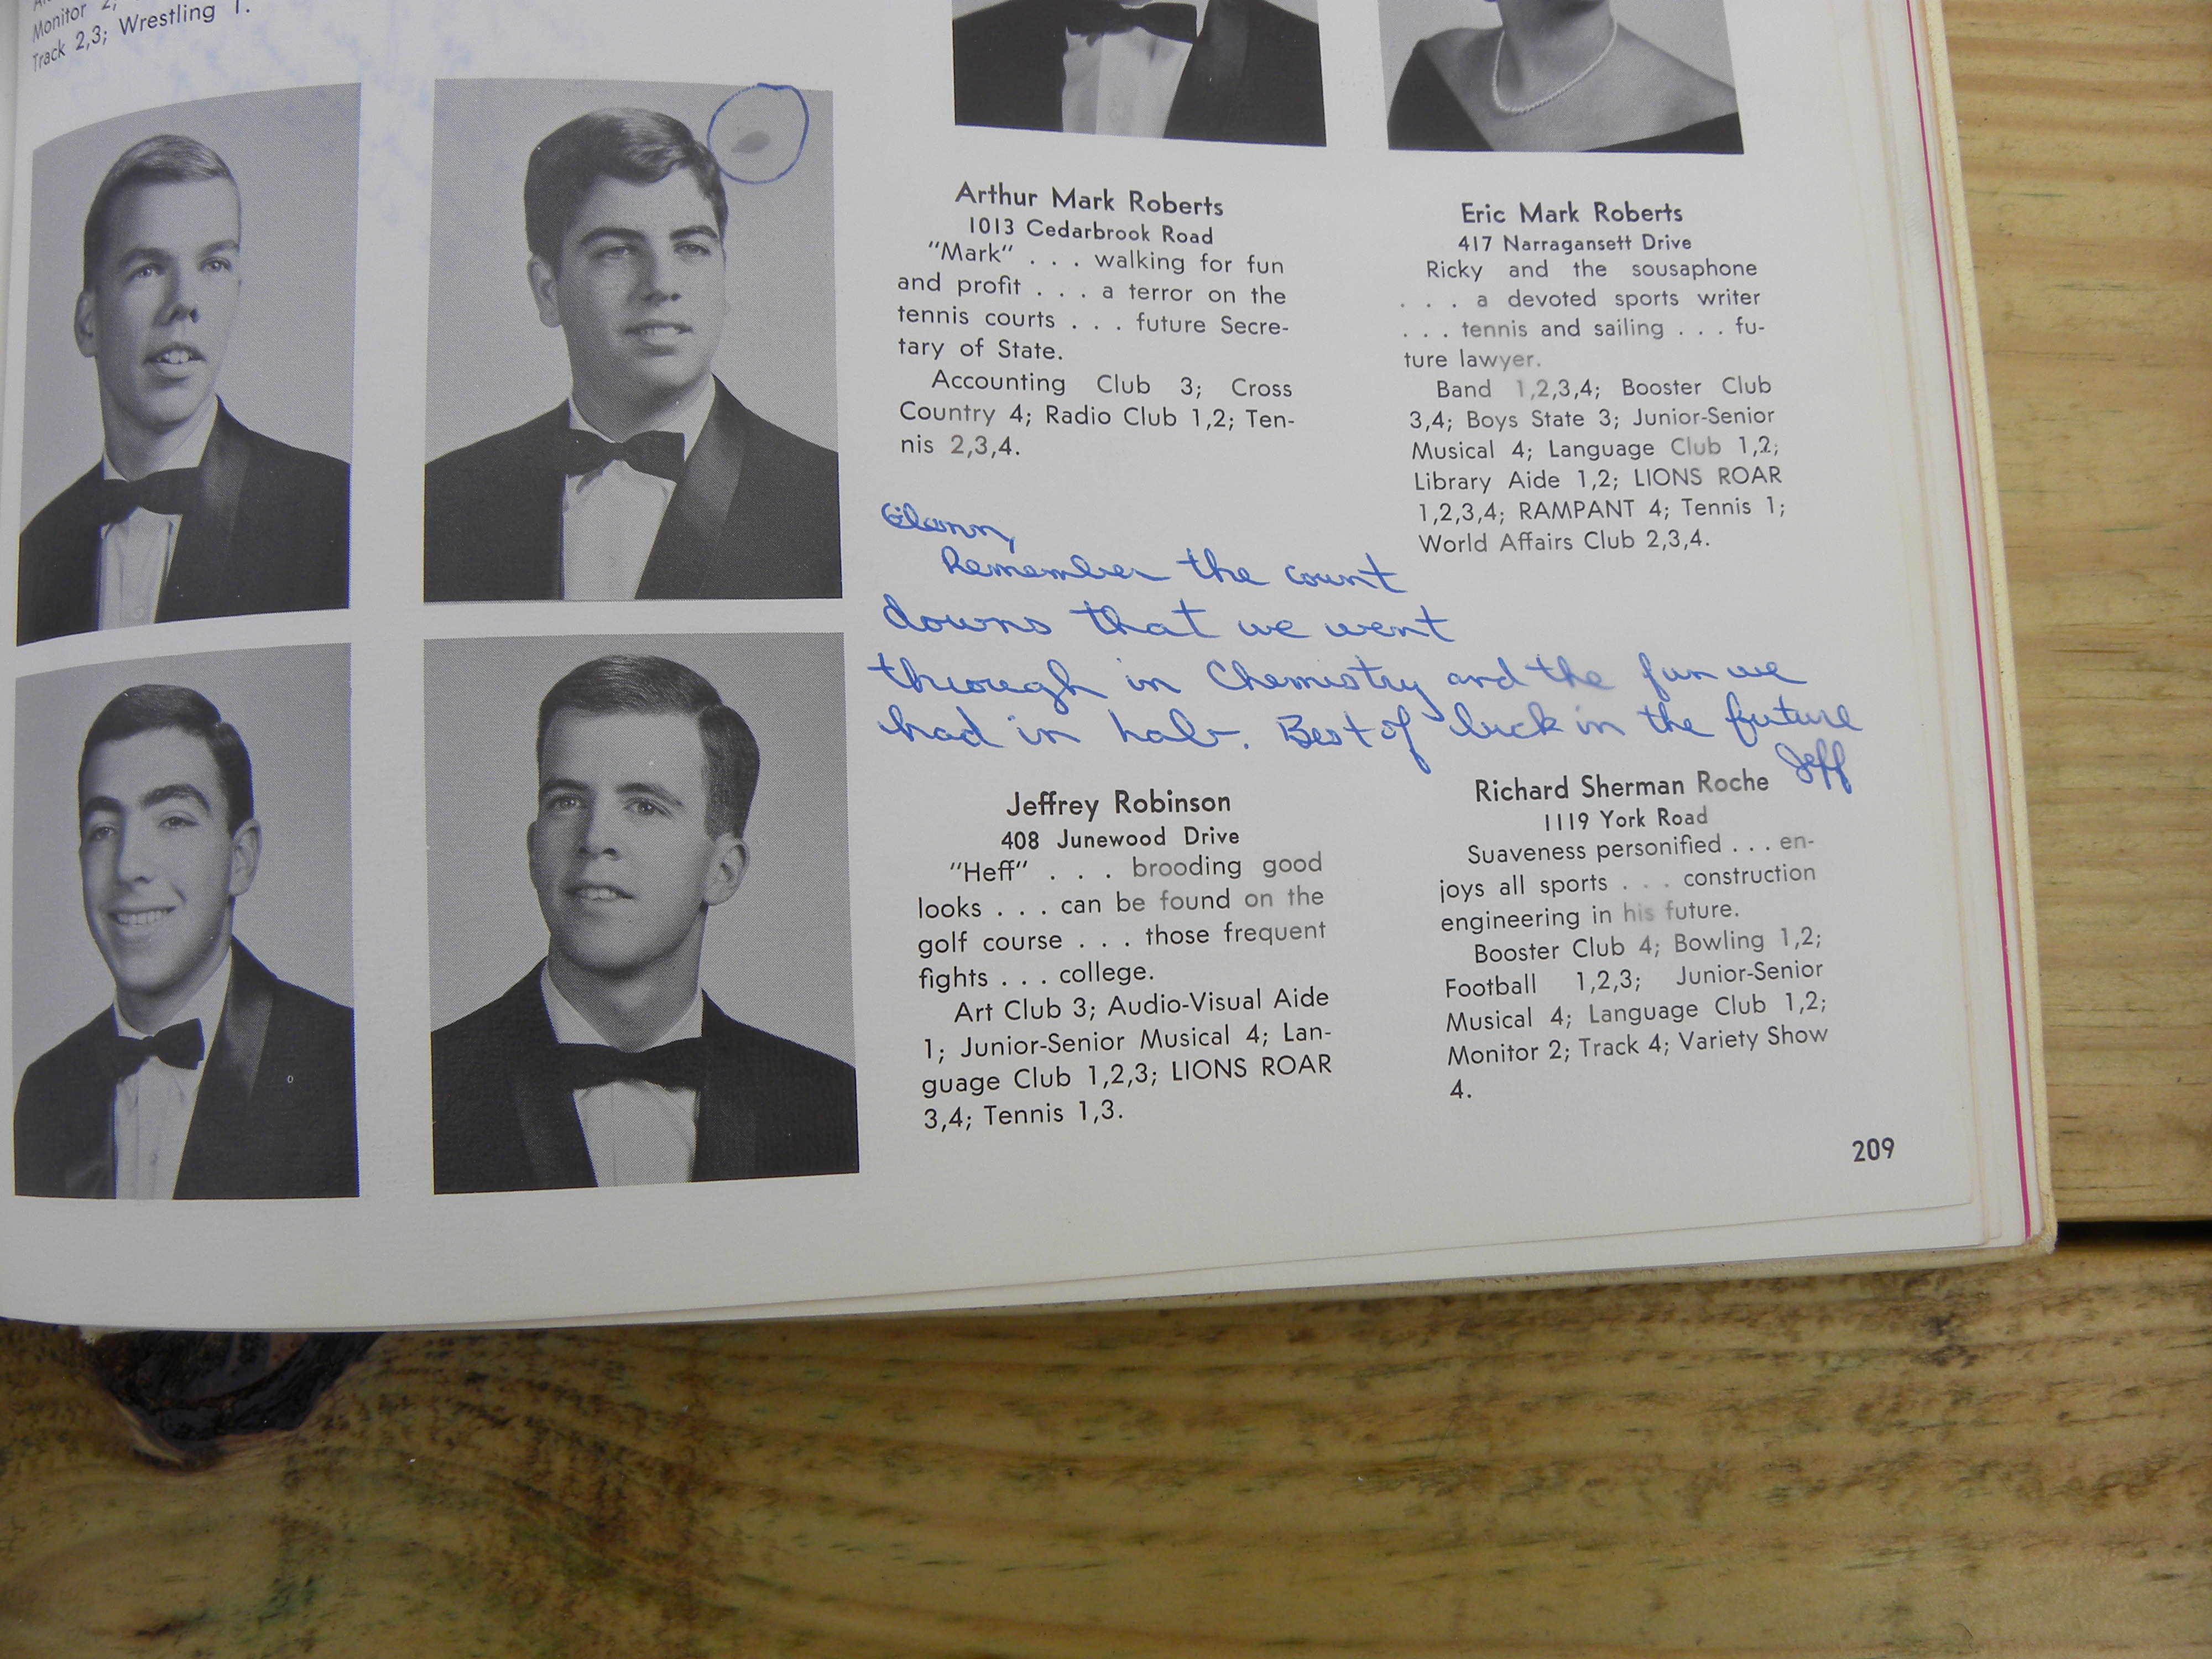 Monitor 2,
Track 2,3; Wrestling 1.
Arthur Mark Roberts
1013 Cedarbrook Road
"Mark" . . . walking for fun
and profit . . . a terror on the
tennis courts . . . future Secre-
tary of State.
Accounting Club 3; Cross
Country 4; Radio Club 1,2; Ten-
nis 2,3,4.
Eric Mark Roberts
417 Narragansett Drive
Ricky and the sousaphone
. . . a devoted sports writer
. . . tennis and sailing . . . fu-
ture lawyer.
Band 1,2,3,4; Booster Club
3,4; Boys State 3; Junior-Senior
Musical 4; Language Club 1,2;
Library Aide 1,2; LIONS ROAR
1,2,3,4; RAMPANT 4; Tennis 1;
World Affairs Club 2,3,4.
Remember the count
downs that we went
through in Chemistry and the fun we
had in lab. Best of luck in the future
Jeff
Jeffrey Robinson
408 Junewood Drive
"Heff" . . . brooding good
looks . . . can be found on the
golf course . . . those frequent
fights . . . college.
Art Club 3; Audio-Visual Aide
1; Junior-Senior Musical 4; Lan-
guage Club 1,2,3; LIONS ROAR
3,4; Tennis 1,3.
Richard Sherman Roche
1119 York Road
Suaveness personified . . . en-
joys all sports . . . construction
engineering in his future.
Booster Club 4; Bowling 1,2;
Football 1,2,3; Junior-Senior
Musical 4; Language Club 1,2;
Monitor 2; Track 4; Variety Show
4.
209